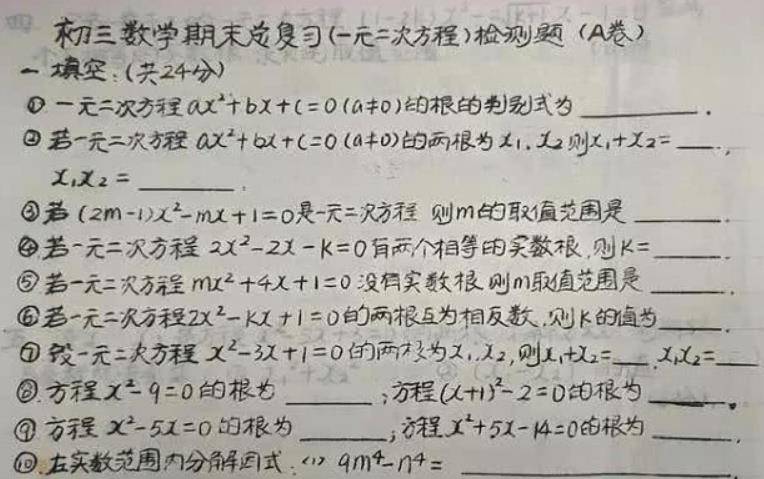 初三数学期末总复习(一元二次方程)检测题(A卷)
一 填空:(共24分)
① 一元二次方程 ax²+bx+c=0(a≠0)的根的判别式为______.
② 若一元二次方程 ax²+bx+c=0(a≠0)的两根为x₁.x₂则x₁+x₂=___.,
x₁x₂=______.
③ 若(2m-1)x²-mx+1=0是一元二次方程 则m的取值范围是______.
④ 若一元二次方程 2x²-2x-k=0有两个相等的实数根,则k=_____.
⑤ 若一元二次方程 mx²+4x+1=0没有实数根则m取值范围是_____.
⑥ 若一元二次方程2x²-kx+1=0的两根互为相反数,则k的值为_____.
⑦ 设一元二次方程 x²-3x+1=0的两根为x₁,x₂,则x₁+x₂=___.x₁x₂=___
⑧.方程x²-9=0的根为______;方程(x+1)²-2=0的根为______.
⑨ 方程x²-5x=0的根为______;方程x²+5x-14=0的根为______.
⑩.在实数范围内分解因式:(1) 9m⁴-n⁴=______________